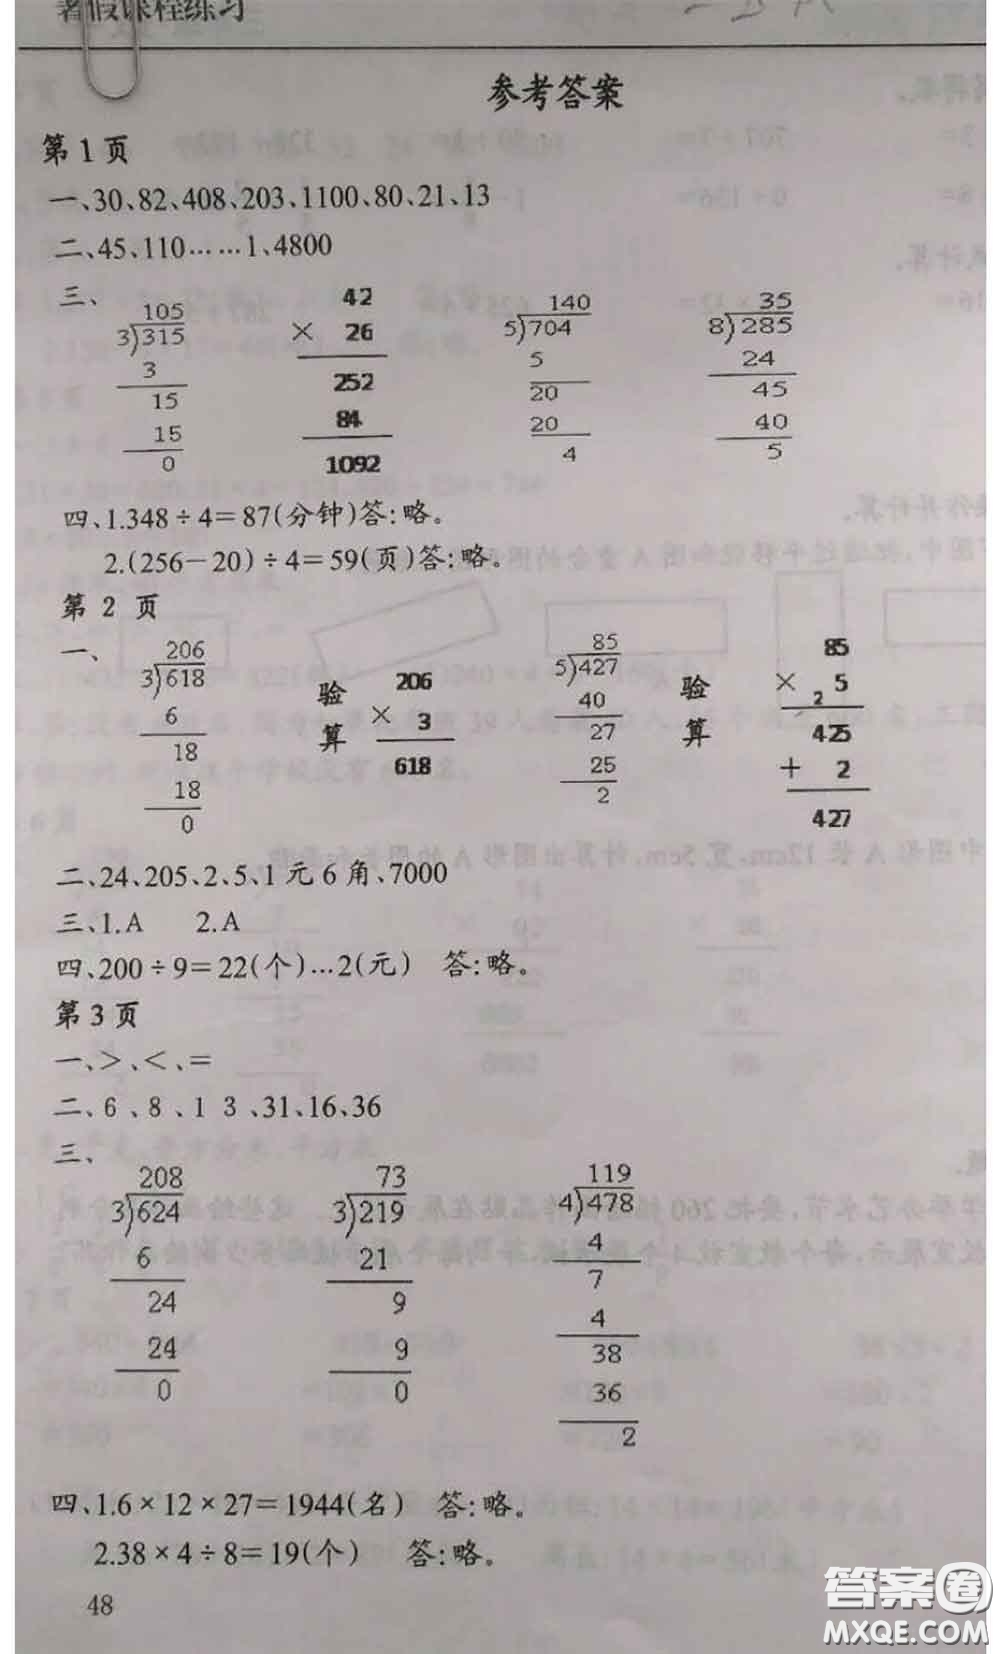 暑假课程练习
参考答案
第1页
一、30、82、408、203、1100、80、21、13
二、45、110……1、4800
三、
105
3)315
3
15
15
0
42
× 26
252
84
1092
140
5)704
5
20
20
4
35
8)285
24
45
40
5
四、1.348÷4=87(分钟)答:略。
2.(256-20)÷4=59(页)答:略。
第 2 页
一、
206
3)618
6
18
18
0
验算
206
× 3
618
85
5)427
40
27
25
2
验算
85
× 2 5
425
+ 2
427
二、24、205、2、5、1元6角、7000
三、1.A 2.A
四、200÷9=22(个)…2(元) 答:略。
第3页
一、>、<、=
二、6、8、13、31、16、36
三、
208
3)624
6
24
24
0
73
3)219
21
9
9
0
119
4)478
4
7
4
38
36
2
四、1.6×12×27=1944(名) 答:略。
2.38×4÷8=19(个) 答:略。
48
答案圈
MXQE.COM